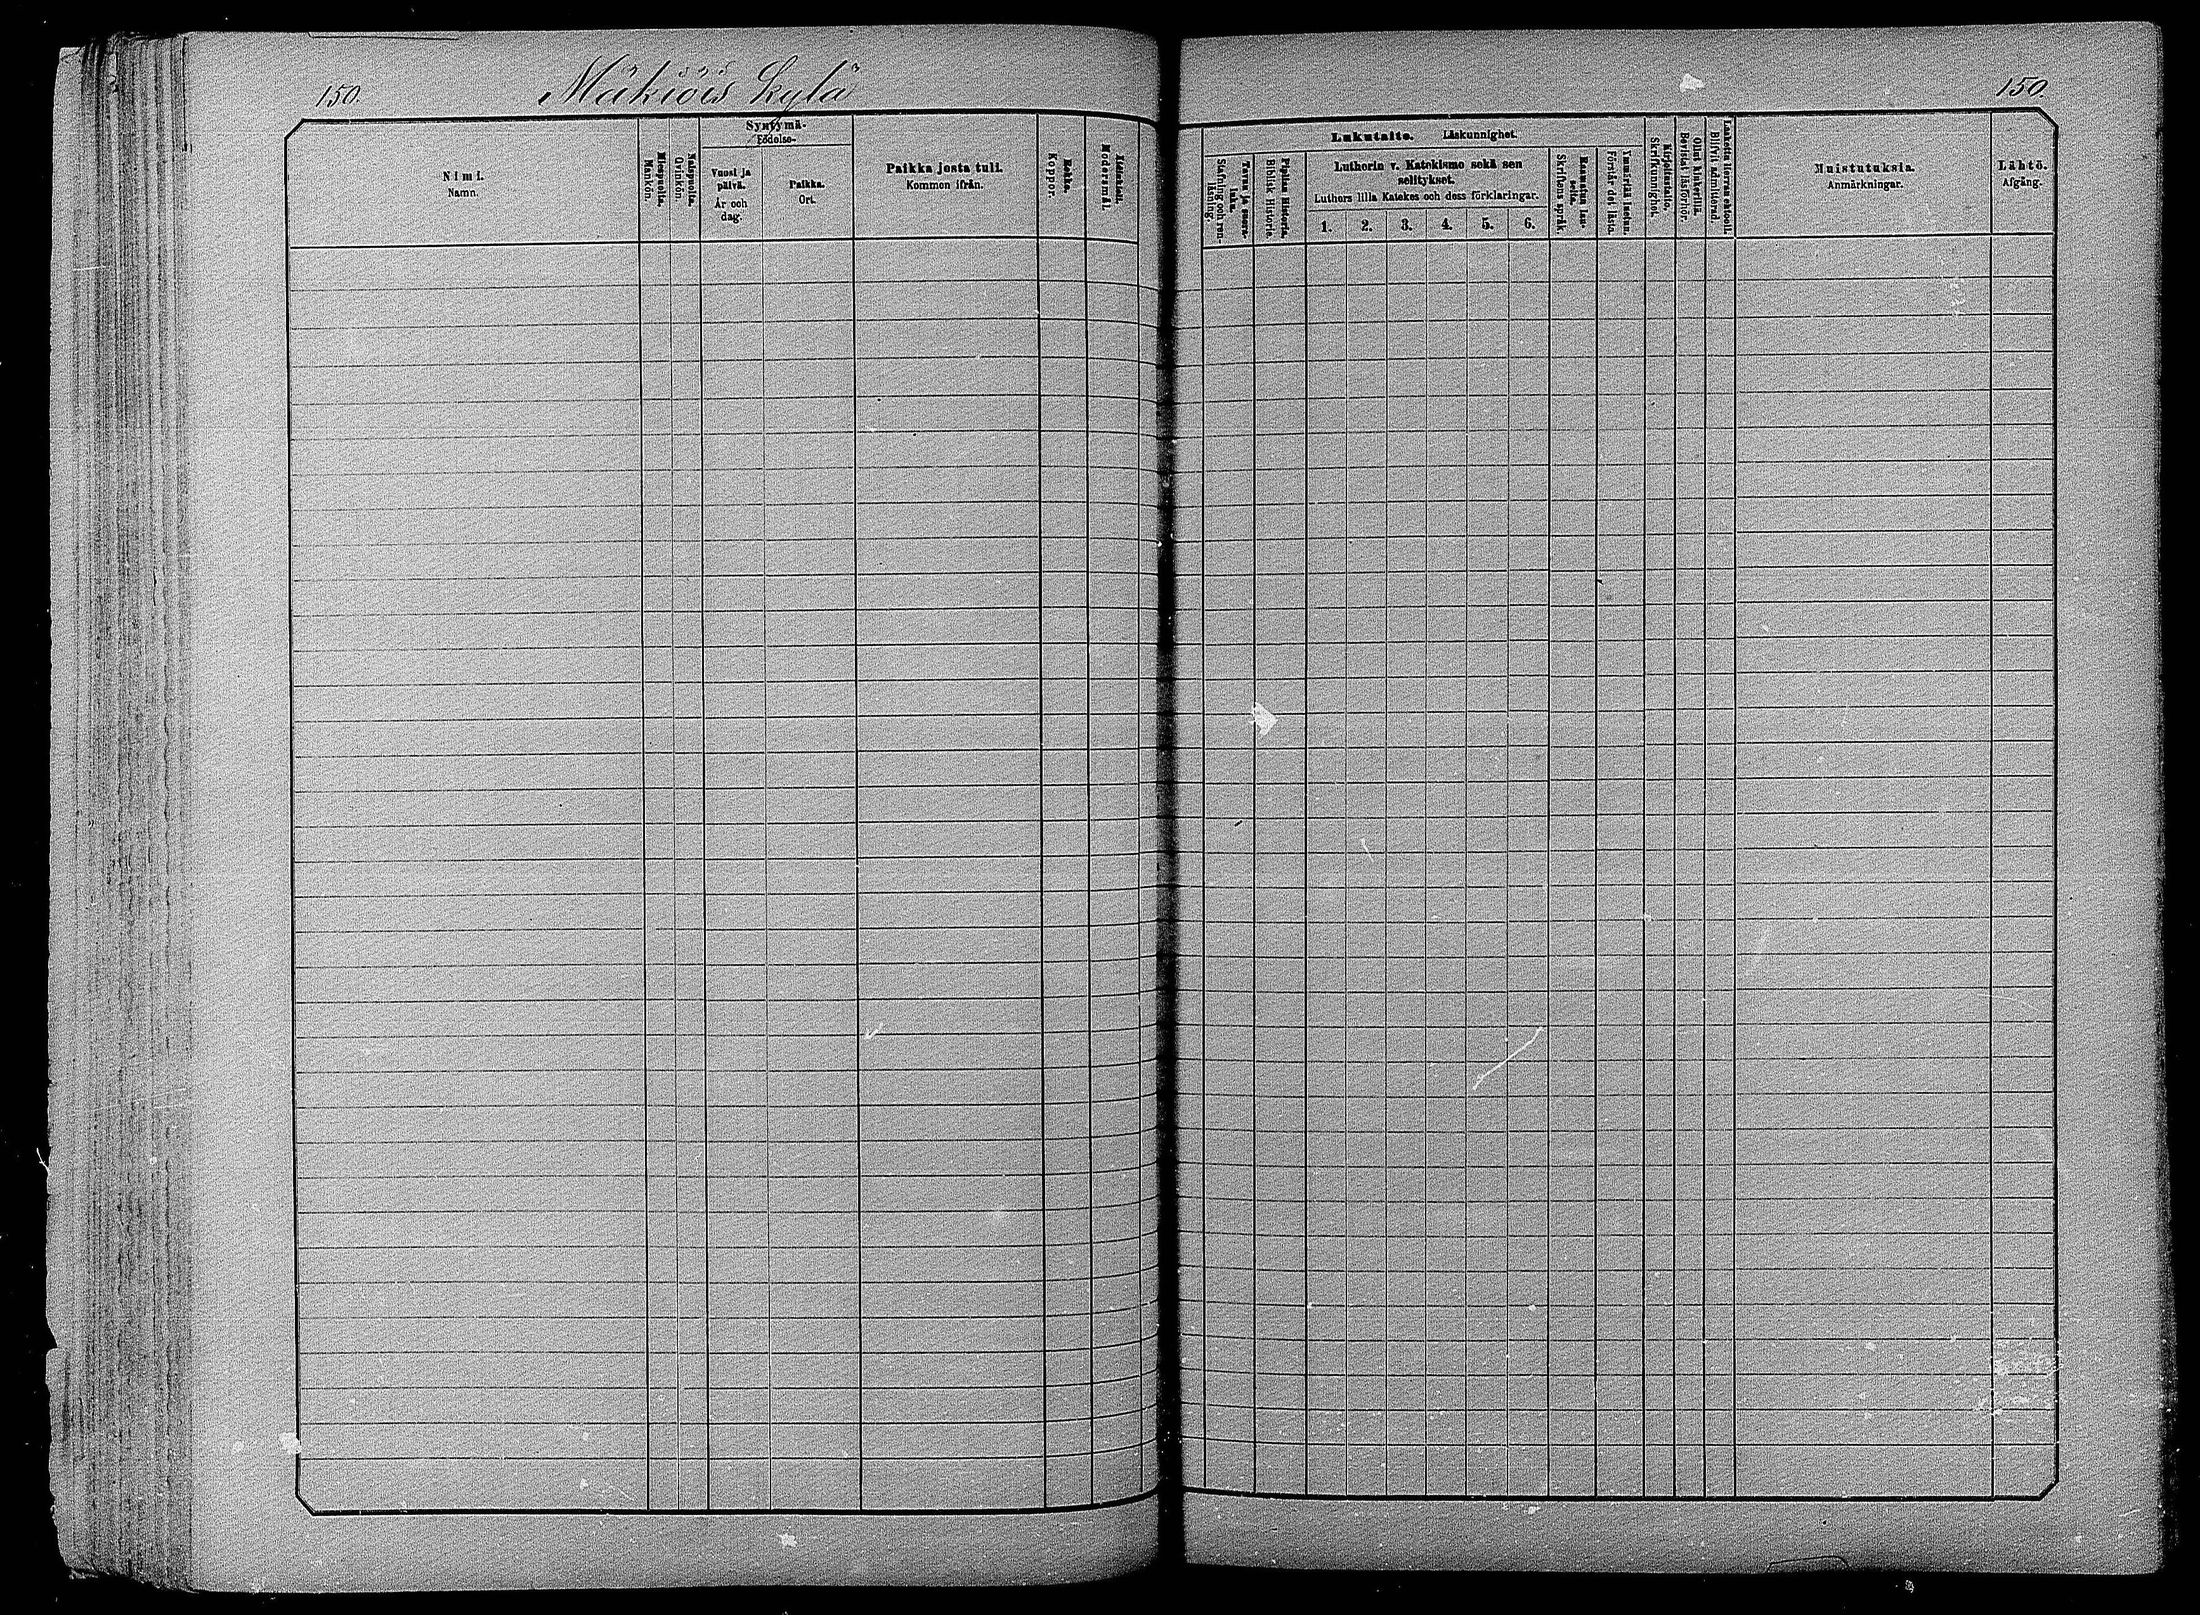 150.
Mäkiöis kylä
150.
Nimi.
Namn.
Miespuolia.
Mankön.
Naispuolia.
Qvinkön.
Syntymä-
Födelse-
Vuosi ja
päivä.
År och
dag.
Paikka.
Ort.
Paikka josta tuli.
Kommen ifrån.
Rokko.
Koppor.
Äidinkieli.
Modersmål.
Lukutaito. Läskunnighet.
Tavaa ja suora-
luku.
Stafning och ren-
läsning.
Piplian Historia.
Biblisk Historia.
Lutherin v. Katekismo sekä sen
selitykset.
Luthers lilla Katekes och dess förklaringar.
1. 2. 3. 4. 5. 6.
Raamatun lau-
seita.
Skriftens språk
Ymmärtää luetun.
Förstår det lästa.
Kirjoitustaito.
Skrifkunnighet.
Ollut kinkerillä.
Bevistat läsförhör.
Laskettu Herran ehtool.
Blifvit admitterad.
Muistutuksia.
Anmärkningar.
Lähtö.
Afgång.